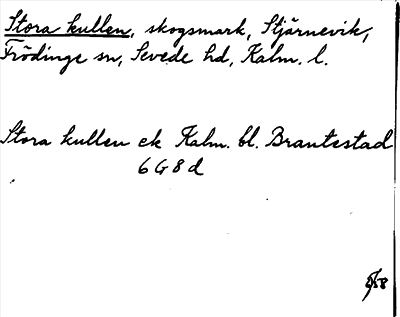 Stora kullen, skogsmark, Stjärnevik,
Frödinge sn, Sevede hd, Kalm. l.
Stora kullen ek Kalm. bl. Brantestad
6 G 8 d